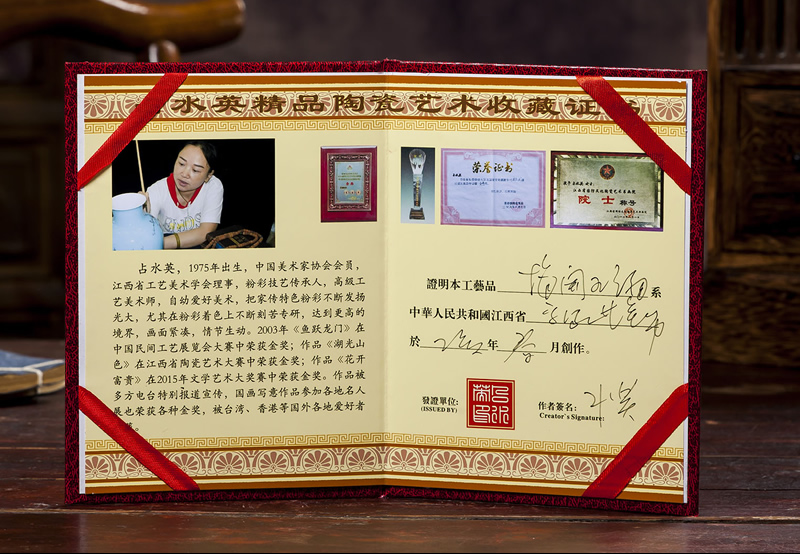 水英精品陶瓷艺术收藏证书
荣誉证书
院士 称号
占水英，1975年出生，中国美术家协会会员，
江西省工艺美术学会理事，粉彩技艺传承人，高级工
艺美术师，自动爱好美术，把家传特色粉彩不断发扬
光大，尤其在粉彩着色上不断刻苦专研，达到更高的
境界，画面紧凑，情节生动。2003年《鱼跃龙门》在
中国民间工艺展览会大赛中荣获金奖；作品《湖光山
色》在江西省陶瓷艺术大赛中荣获金奖；作品《花开
富贵》在2015年文学艺术大奖赛中荣获金奖。作品被
多方电台特别报道宣传，国画写意作品参加各地名人
展也荣获各种金奖，被台湾、香港等国外各地爱好者
證明本工藝品 系
中華人民共和國江西省
於 年 春 月創作。
發證單位:
(ISSUED BY)
作者簽名:
Creator's Signature:
水英